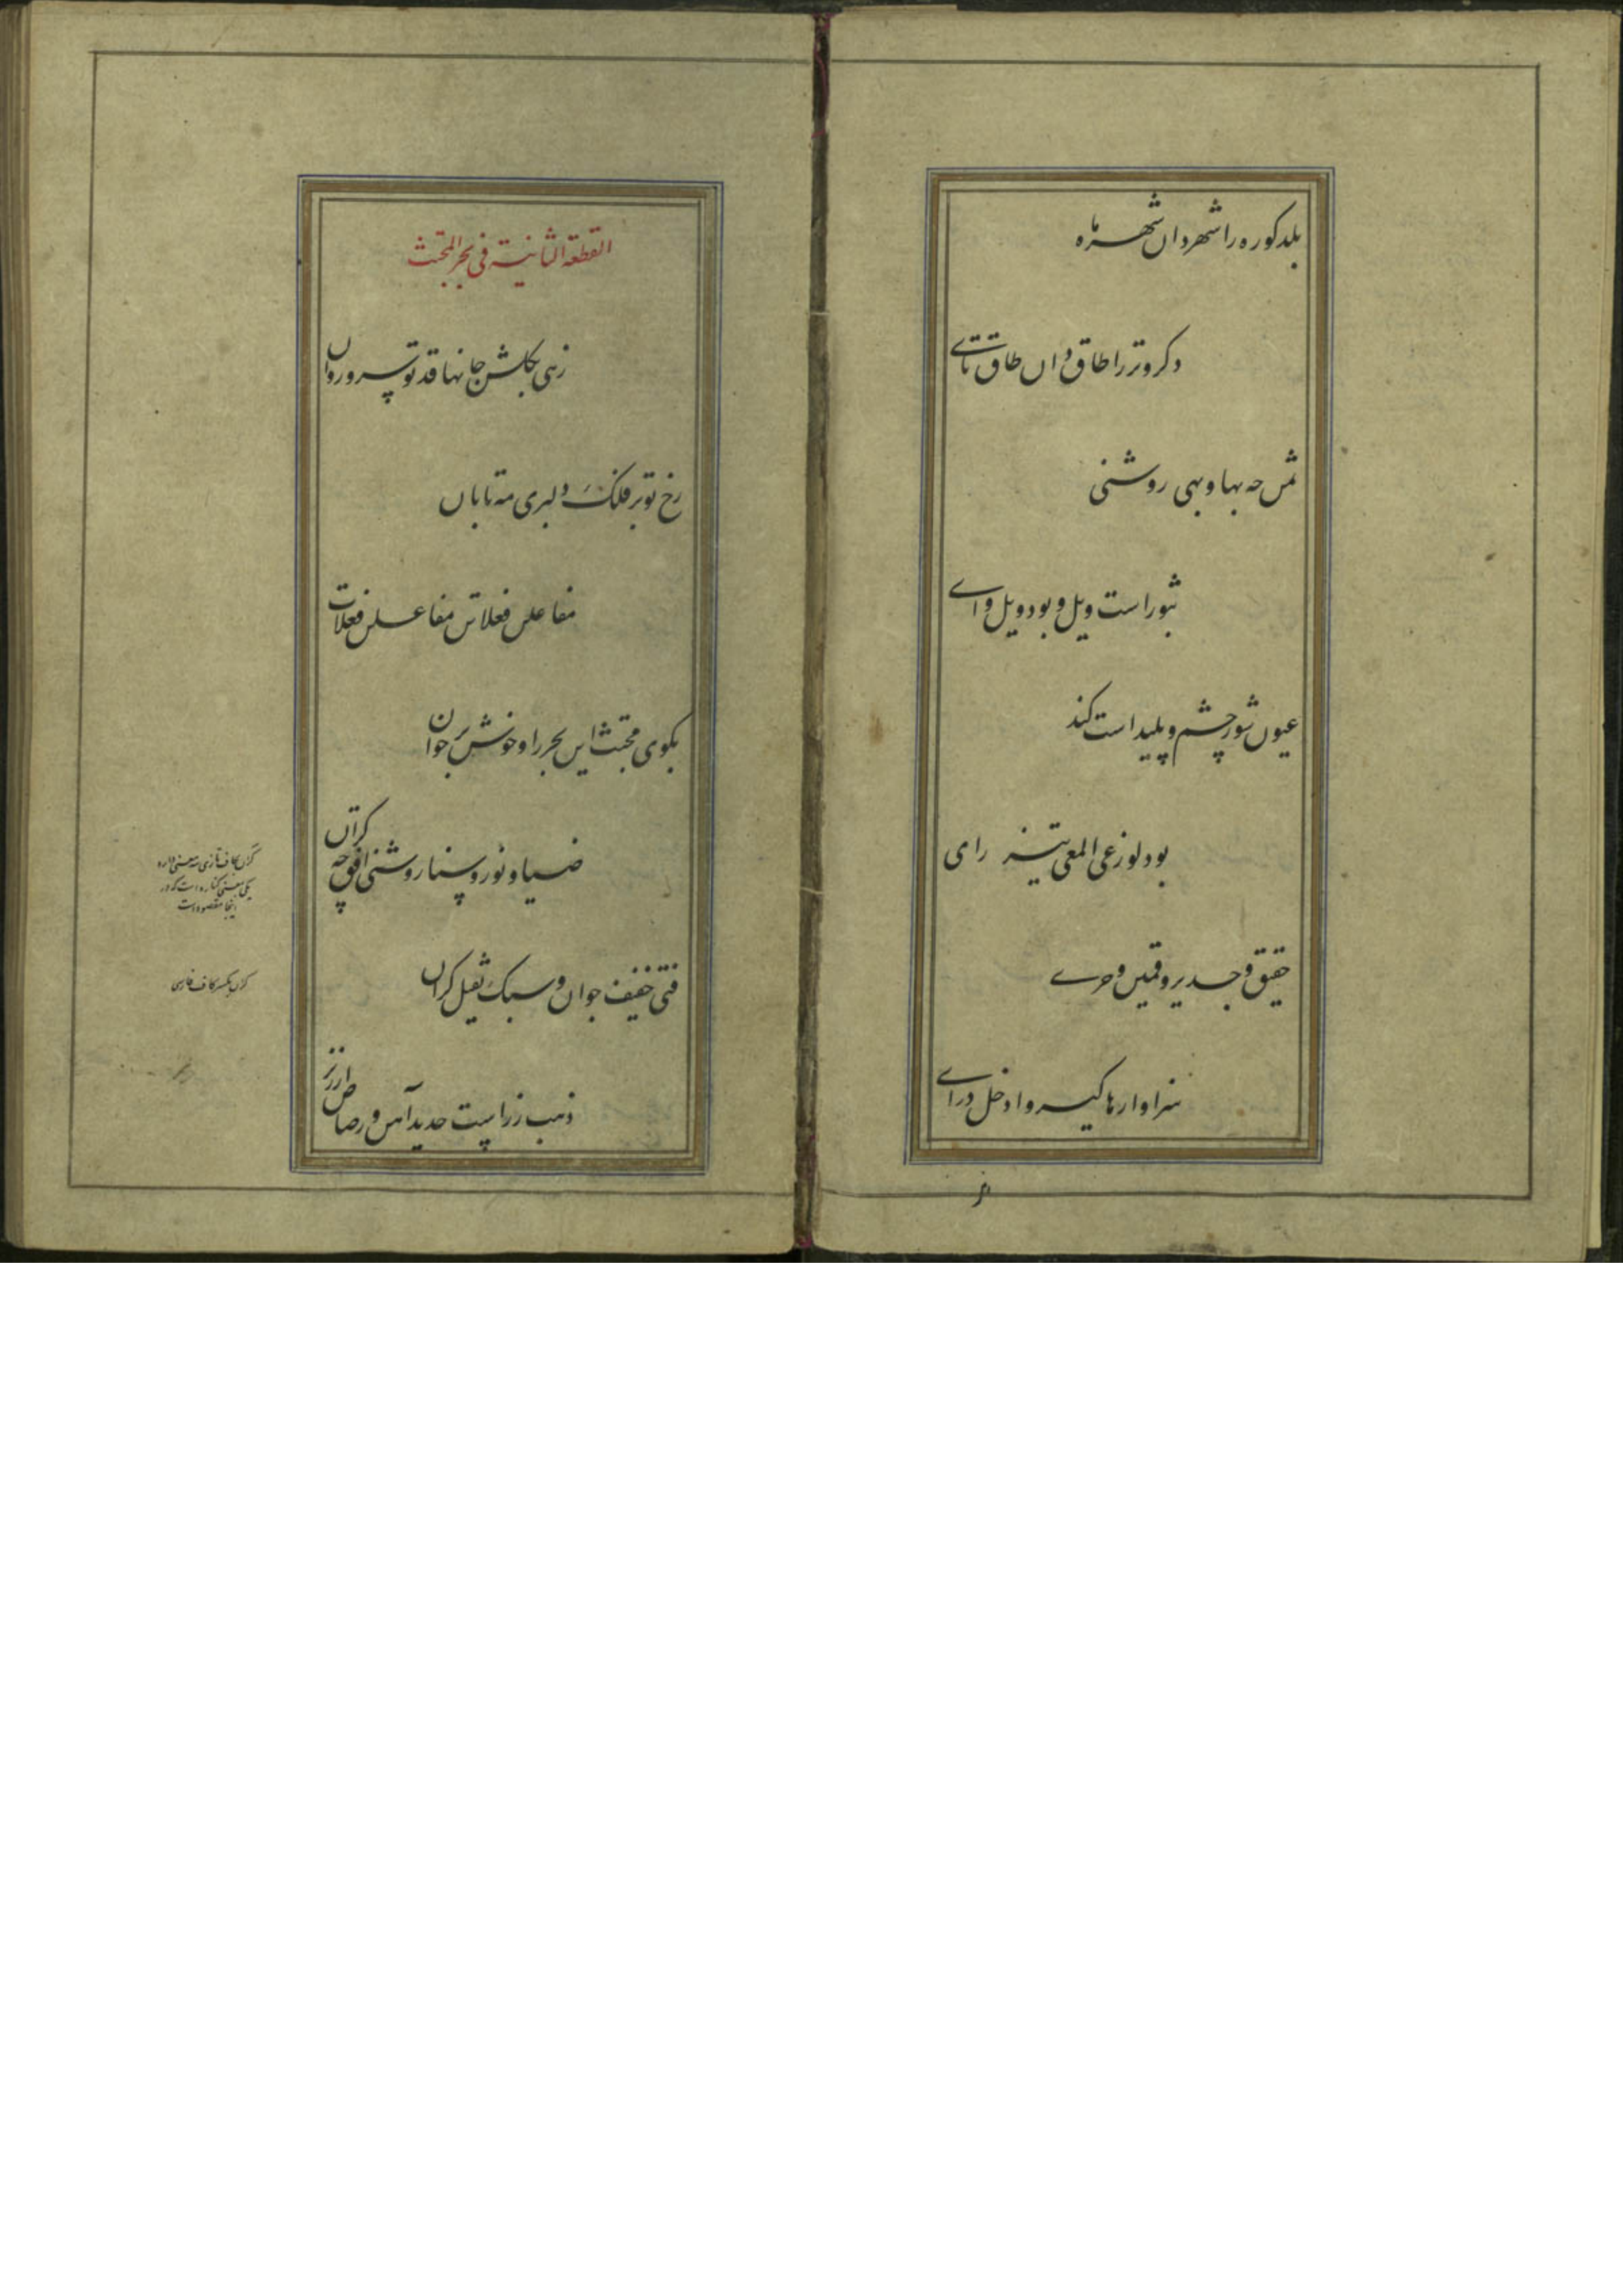 بلد کوره را شهر دان شهر ماه
دگر وتر را طاق و ان طاق تای
ثمن چه بها و بهی روشنی
ثبور است ویل و بود ویل وای
عیون شور چشم و پلید است کند
بود لوزعی المعی تیز رای
حقیق و جدیر و قمین و حری
سزاوار ها گیر و ادخل درای
القطعة الثانیة فی بحر المجتث
زهی بگلشن جانها قد تو سرو روان
رخ تو بر فلک دلبری مه تابان
مفاعلن فعلاتن مفاعلن فعلات
بگوی مجتث این بحر را و خوش بر خوان
ضیا و نور و سنا روشنی افق چه کران
فتی خفیف جوان و سبک ثقیل گران
ذهب زر است حدید آهن و رصاص ارزیز
کران بکاف تازی سه معنی دارد
یکی بمعنی کناره است که در
اینجا مقصود است
گران بکسر کاف فارسی